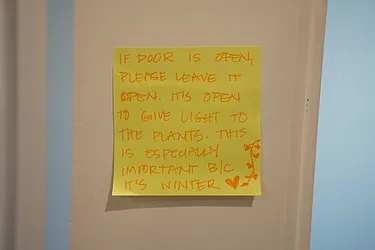 IF DOOR IS OPEN,
PLEASE LEAVE IT
OPEN. IT'S OPEN
TO GIVE LIGHT TO
THE PLANTS. THIS
IS ESPECIALLY
IMPORTANT B/C
IT'S WINTER